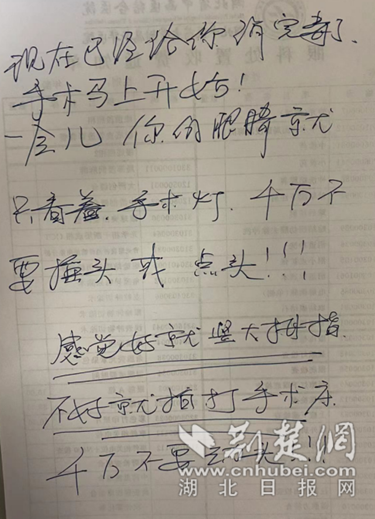 现在已经给你消完毒了.
手术马上开始!
一会儿 你的眼睛就
只看着.手术灯.千万不
要摇头 或 点头!!!
感觉好就竖大拇指.
不好就拍打手术床
千万不要 头!!!
荆楚網
www.cnhubei.com
湖北日报网